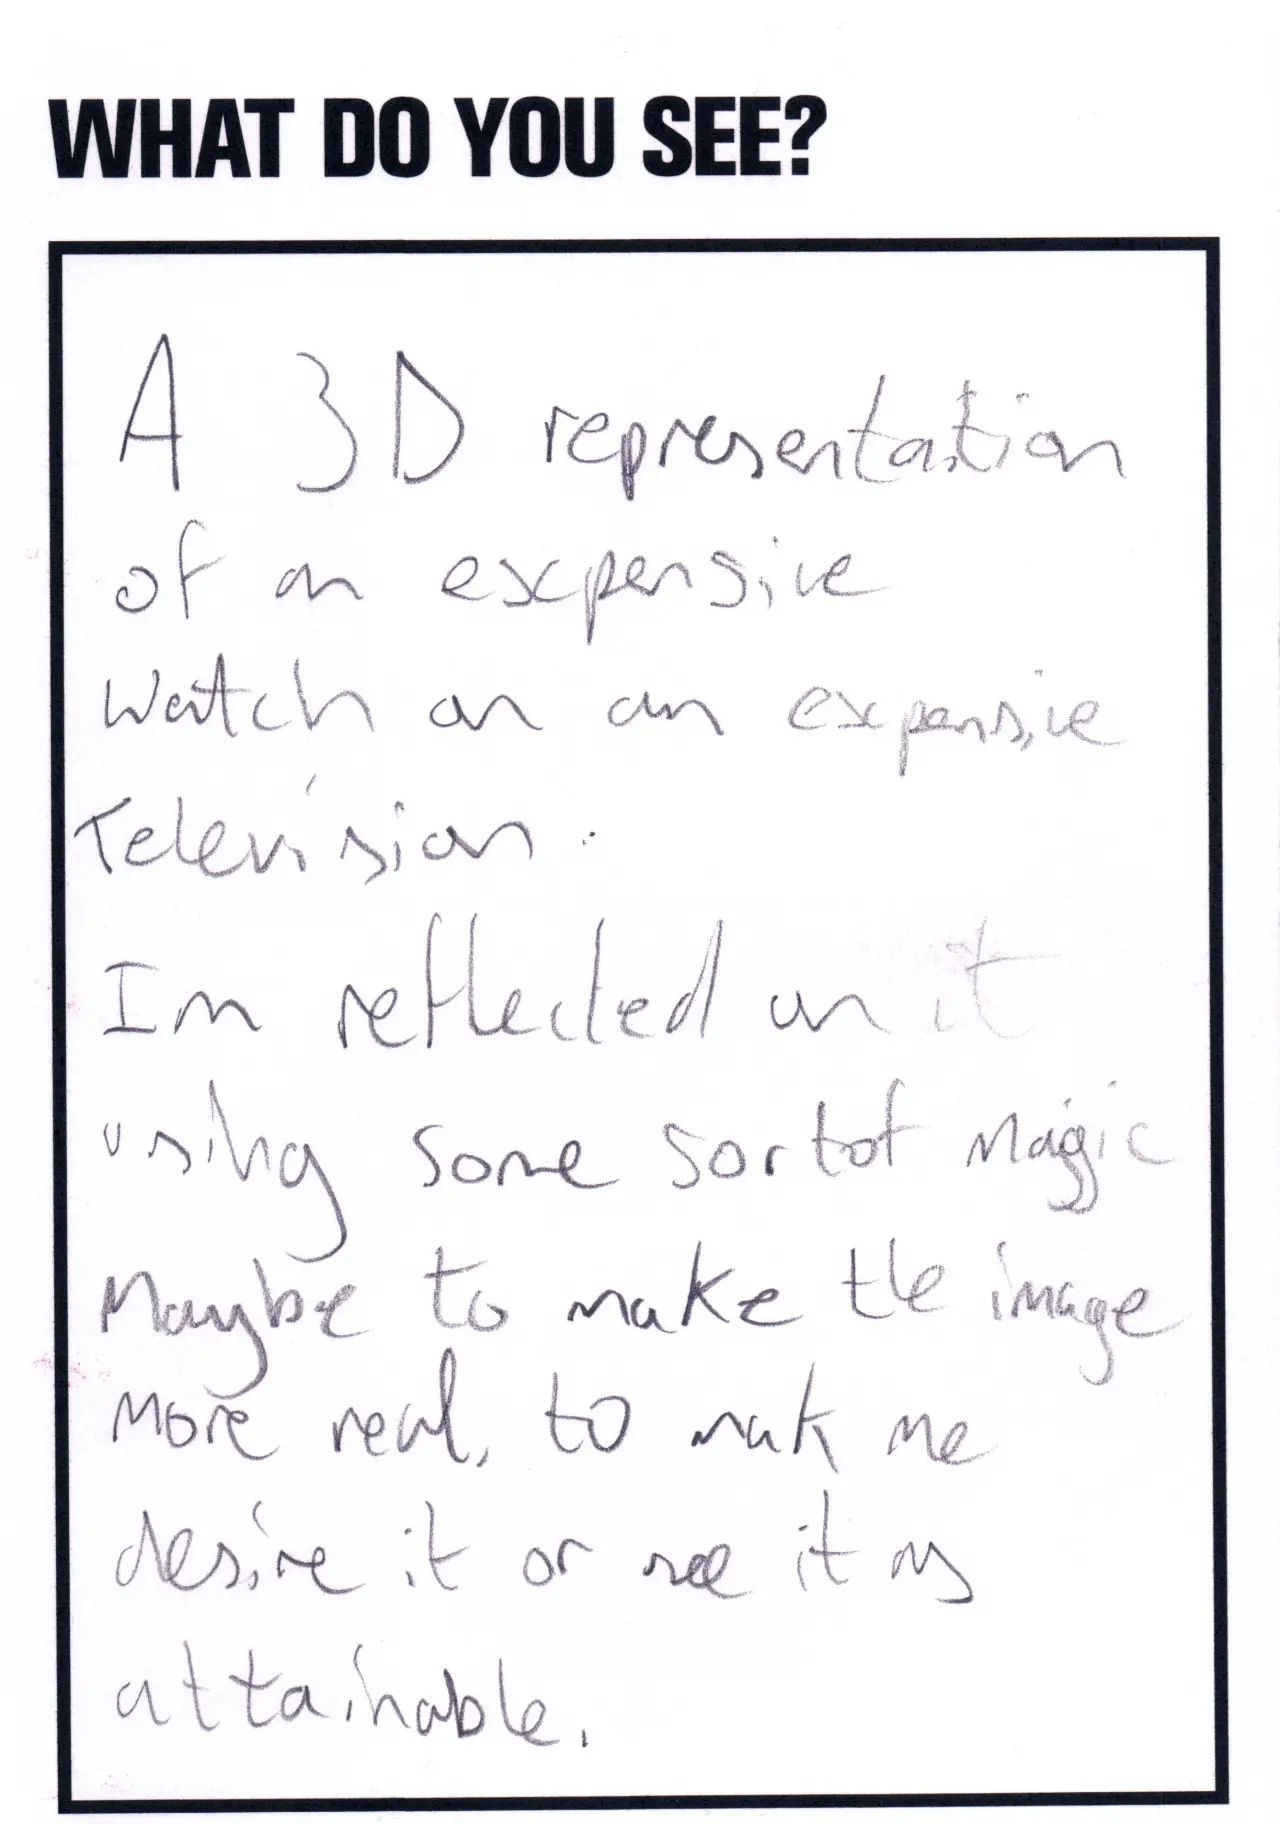 WHAT DO YOU SEE?
A 3D representation
of an expensive
Watch on an expensive
Television.
Im reflected on it
using some sort of magic
Maybe to make the image
More real, to make me
desire it or see it as
attainable.